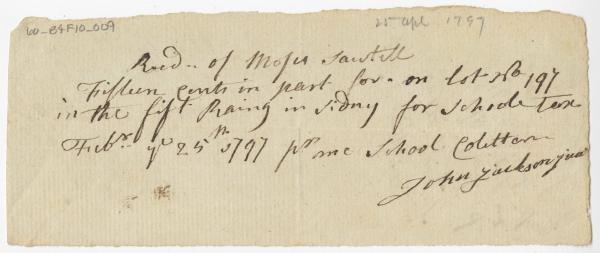 100-E4F10-009
25 apl 1797
Recd.. of Moses Sawtell
Fifteen cents in part for on lot No 197
in the fift Raing in Sidny for Schoole Tax
Febr. ye 25th 1797 pr me School Colettor
John Jackson junr